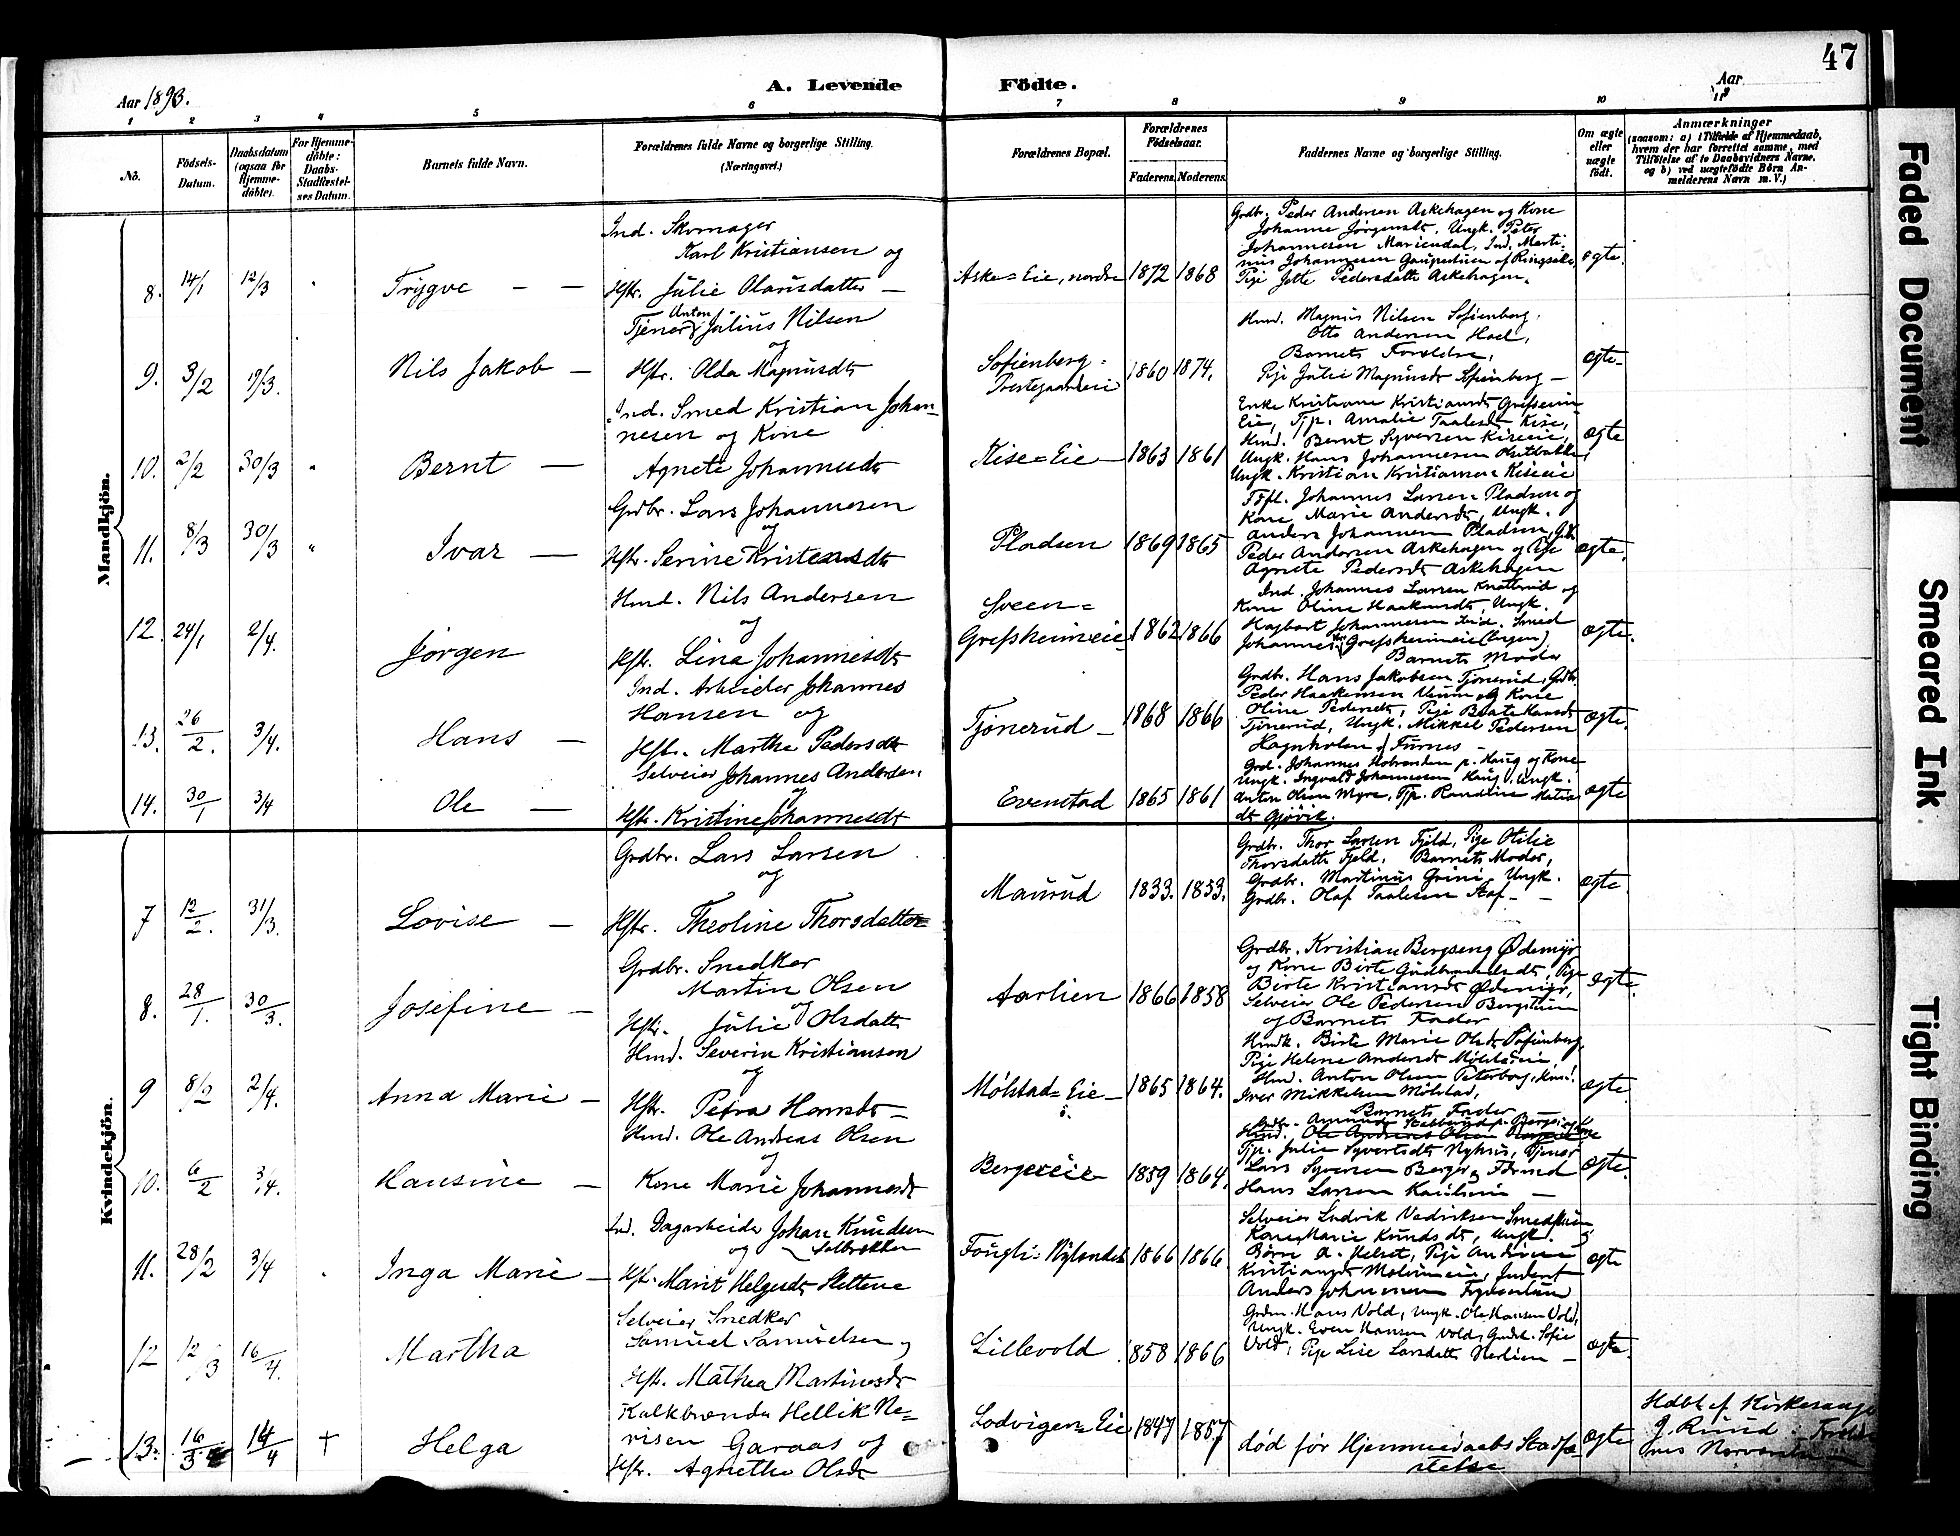 47
Aar 1893.
A. Levende Födte.
Aar 18
1 2 3 4 5 6 7 8 9 10 11
No.
Födsels-Datum.
Daabsdatum (ogsaa för Hjemmedöbte).
For Hjemmedöbte: Daabs-Stadfæstelses Datum.
Barnets fulde Navn.
Forældrenes fulde Navne og borgerlige Stilling. (Næringsvei.)
Forældrenes Bopæl.
Forældrenes Födselsaar.
Faderens. Moderens.
Faddernes Navne og borgerlige Stilling.
Om ægte eller uægte födt.
Anmærkninger
(saasom: a) i Tilfælde af Hjemmedaab,
hvem der har forrettet samme, med
Tilföielse af to Daabsvidners Navne,
og b) ved uægtefödte Börn An-
melderens Navn m. V.)
Mandkjön.
8. 14/1 12/3 " Trygve — —
Ind. Skomager
Karl Kristiansen og
Hstr. Julie Olausdatter —
Aske=Eie, nordre 1872 1868
Grdbr. Peder Andersen Askehagen og Kone
Johanne Jørgensdt, Ungk. Peter
Johannesen Mariendal, Ind. Marti-
nus Johannesen
Pige Jette Pedersdatter Askehagen.
ægte.
9. 3/2 19/3. Nils Jakob —
Tjener Anton Julius Nilsen
og
Hstr. Olda Magnusdt
Sofienberg=
Præstegaardseie 1860 1874.
Hmd. Magnus Nilsen Sofienberg.
Otto Andersen Hoel,
Barnets Forældre,
Pige Julie Magnusdt Sofienberg —
ægte.
10. 2/2 30/3 " Bernt —
Ind. Smed Kristian Johan-
nesen og Kone
Agnete Johannesdt
Kise=Eie — 1863 1861
Enke Kristiane Kristiansdt Grefsheim
Eie, Tjp. Amalie Taalesdt Kise,
Hmd. Bernt Syversen Kiseeie,
Ungk. Hans Johannesen
Ungk. Kristian Kristiansen Kiseeie
ægte
11. 8/3 30/3 " Ivar —
Grdbr. Lars Johannesen
og
Hstr. Serine Kristensdt
Pladsen 1869 1865
Johannes Larsen Pladsen og
Kone Marie Andersdt, Ungk.
Anders Johannesen Pladsen, Gdb.
Peder Andersen Askehagen og Pige
Agnete Pedersdt Askehagen
ægte.
12. 24/1 2/4. Jörgen
Hmd. Nils Andersen
og
Hstr. Lina Johannesdt
Sveen=
Grefsheimeie 1862 1866
Ind. Johannes Larsen og
Kone Oline Haakensdt, Ungk.
Hagbart Johannesen Ind. Smed
Johannes Grefsheimeie
Barnets Moder
ægte.
13. 26/2. 3/4. Hans —
Ind. Arbeider Johannes
Hansen og
Hstr. Martha Pedersdt
Tjønerud — 1868 1866
Grdbr. Hans Jakobsen Tjønerud, Grdbr.
Peder Haakensen og Kone
Oline Pedersdt, Pige Beate Hansdt
Tjønerud, Ungk. Mikkel Pedersen
Furnes —
ægte.
14. 30/1 3/4 Ole —
Selveier Johannes Andersen
og
Hstr. Kristine Johannesdt
Evenstad 1865 1861
Grd. Johannes p. Haug og Kone
Ungk. Ingvald Johannesen Haug, Ungk.
Anton Olsen Myre, Tjp.
dt Gjövik.
ægte
Kvindekjön.
7 12/2. 31/3. Lovise —
Grdbr. Lars Larsen
og
Hstr. Theoline Thorsdatter
Maurud 1833. 1853.
Grdbr. Thor Larsen Fjeld, Pige Otilie
Thorsdatter Fjeld, Barnets Moder,
Grdbr. Martinus Grini. Ungk.
Grdbr. Olaf Taalesen Staf — —
ægte.
8. 28/1. 30/3. Josefine —
Grdbr. Snedker
Martin Olsen
og
Hstr. Julie Olsdatter
Aarlien 1866 1858
Grdbr. Kristian Bergseng Ødemyr
og Kone Birte Gudbrandsdt, Pige
Birte Kristiansdt Ødemyr,
Selveier Ole Pedersen
og Barnets Fader
ægte.
9 8/2 2/4. Anna Marie —
Hmd. Severin Kristiansen
og
Hstr. Petra Hansdt —
Mølstad=Eie — 1865 1864.
Birte Marie Olsdt Sofienberg,
Pige Helene Andersdt Mølstadeie
Hmd. Anton Olsen Peterborg,
Iver Mikkelsen Mølstad,
Barnets Fader
ægte.
10. 6/2 3/4. Hansine —
Hmd. Ole Andreas Olsen
og
Kone Marie Johannesdt
Bergereie 1859 1864.
Hmd. Ole Andreas Olsen
Tjp. Julie Syvertsdt Nyhus, Tjener
Lars Syversen Berger og
Hans Larsen —
ægte.
11. 28/2 3/4 Inga Marie —
Ind. Dagarbeider Johan Knudsen
og Solbrækken
Hstr. Marit Helgesdt Slettene
1866 1866
Selveier Ludvik Vedriksen
Kone Marie Knudsdt, Ungk.
Pige Andrine
Kristiansdt Indent
Anders Johannesen
ægte
12 12/3 16/4. Martha
Selveier Snedker
Samuel Samuelsen og
Hstr. Mathea Martinusdt
Lillevold 1858 1866
Hans Vold, Ungk. Ole Hansen Vold,
Ungk. Even Hansen Vold, Sofie
Vold, Pige Lise Larsdatter Nedlien —
ægte.
13. 16/3 14/4 † Helga
Kalkbrænder Hellik Ne=
visen Garaas og
Hstr. Agnethe Olsdt
Lodvigen=Eie 1847 1857
død før Hjemmedaabs Stadfæ
stelse
ægte
Hdbt af Kirkesanger
J. Ruud
Faded Document
Smeared Ink
Tight Binding